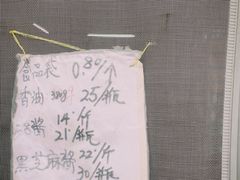 食品袋 0.80/个
香油 320g 25/瓶
二八酱 14/斤
21/瓶
黑芝麻酱 22/斤
30/瓶